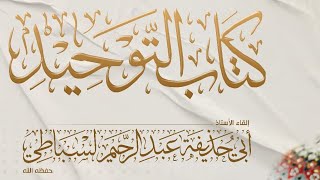 كتاب التوحيد
إلقاء الأستاذ
أبي حذيفة عبد الرحيم السباطي
حفظه الله